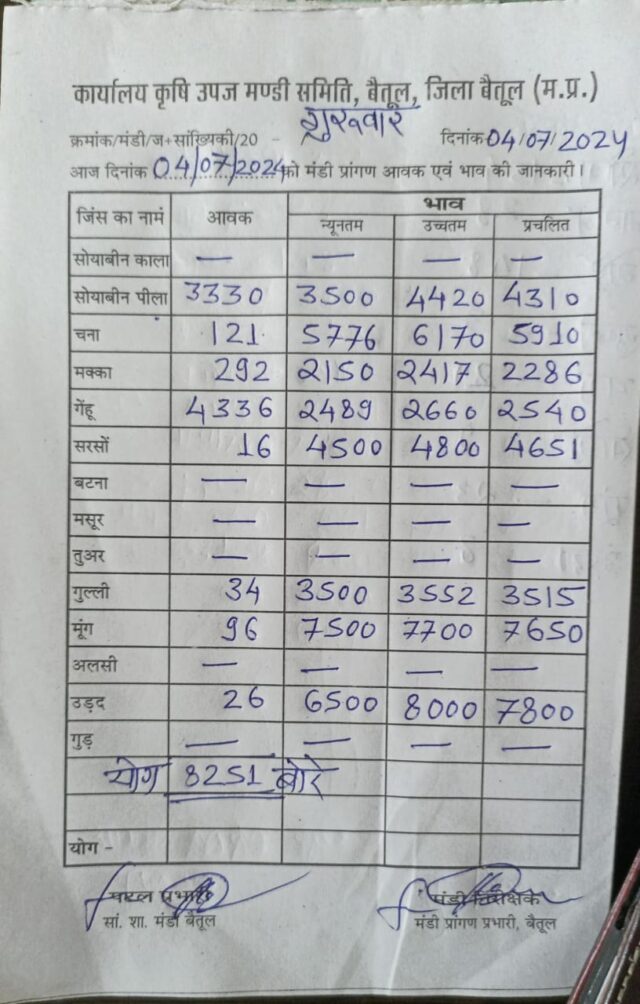 कार्यालय कृषि उपज मण्डी समिति, बैतूल, जिला बैतूल (म.प्र.)
गुरूवार
क्रमांक/मंडी/ज+सांख्यिकी/20 - दिनांक 04/07/2024
आज दिनांक 04/07/2024 को मंडी प्रांगण आवक एवं भाव की जानकारी।
जिंस का नामं आवक भाव
न्यूनतम उच्चतम प्रचलित
सोयाबीन काला — — — —
सोयाबीन पीला 3330 3500 4420 4310
चना 121 5776 6170 5910
मक्का 292 2150 2417 2286
गेंहू 4336 2489 2660 2540
सरसों 16 4500 4800 4651
बटना — — — —
मसूर — — — —
तुअर — — — —
गुल्ली 34 3500 3552 3515
मूंग 96 7500 7700 7650
अलसी — — — —
उड़द 26 6500 8000 7800
गुड़ — — — —
योग 8251 बोरे
योग -
प्रभारी मंडी निरीक्षक
सां. शा. मंडी बैतूल मंडी प्रांगण प्रभारी, बैतूल